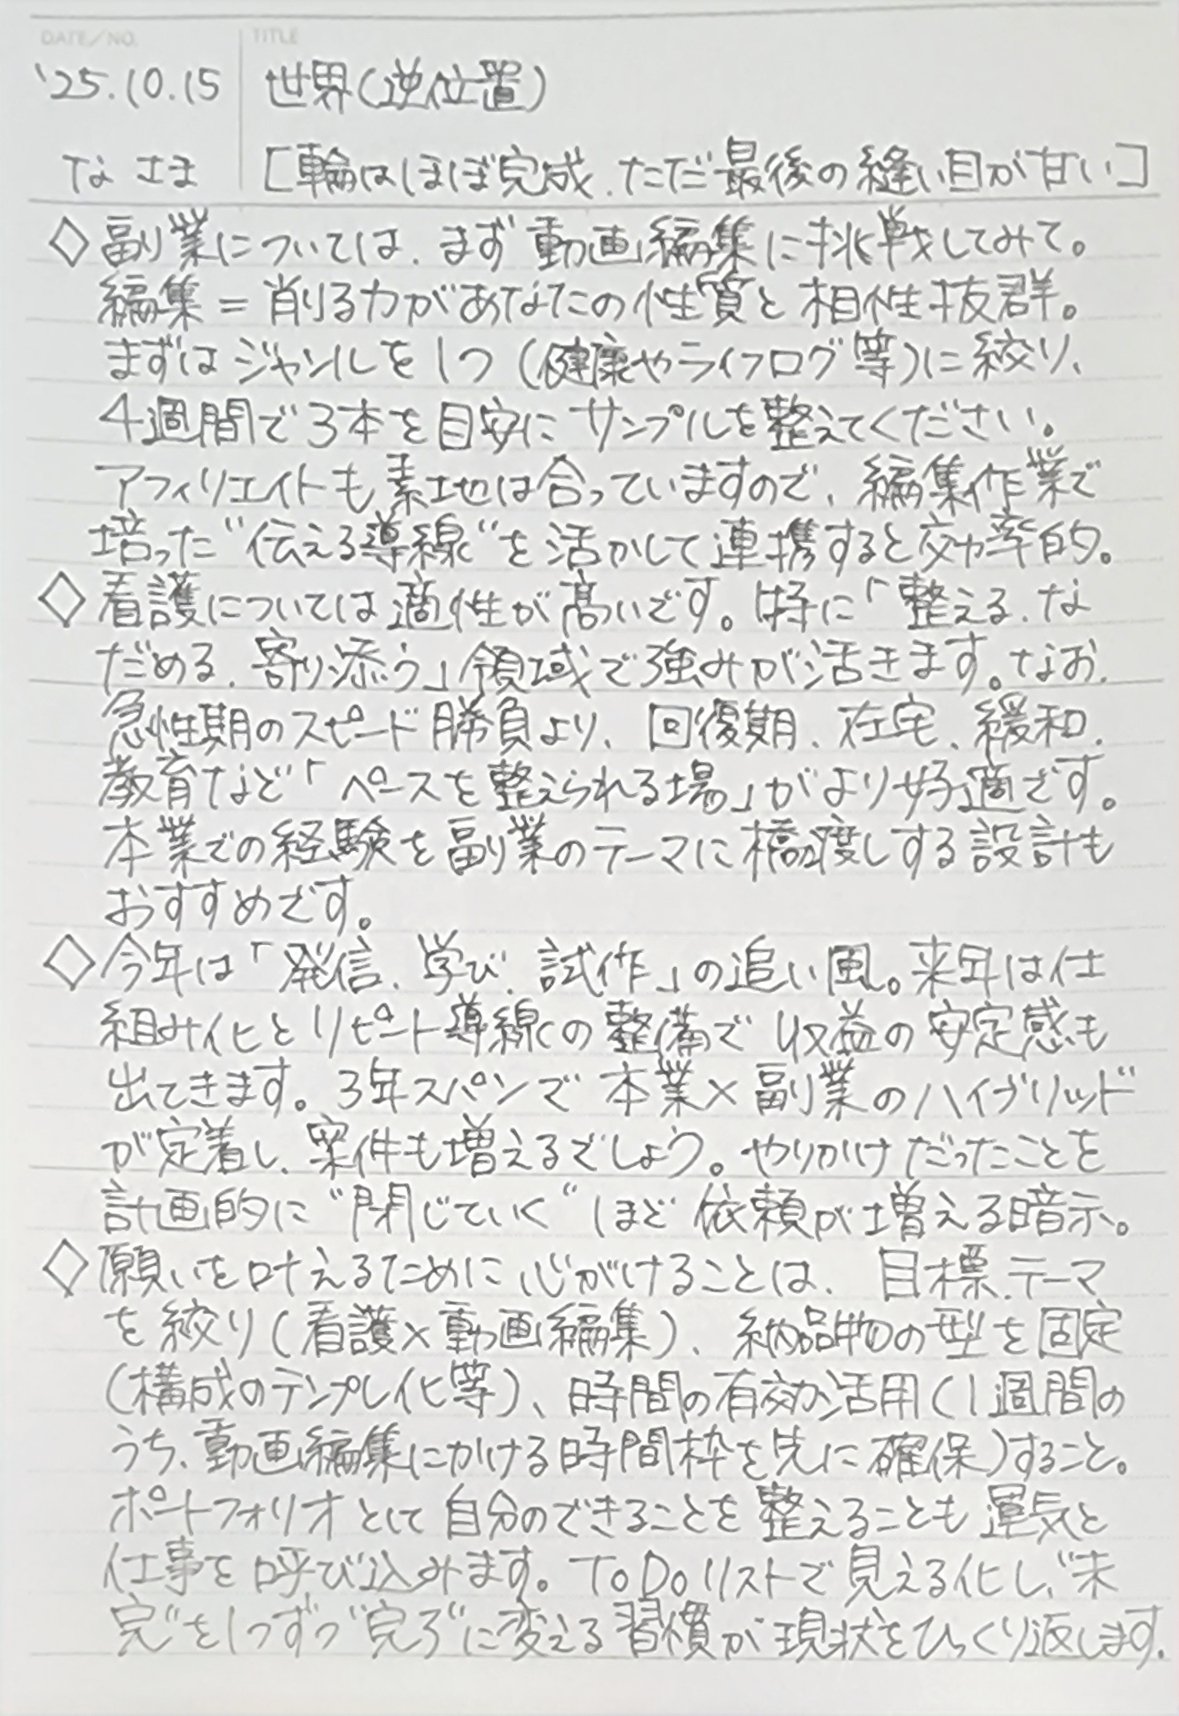 DATE/NO.
TITLE
'25.10.15
世界(逆位置)
な さま
[輪はほぼ完成、ただ最後の縫い目が甘い]
◇副業については、まず動画編集に挑戦してみて。
編集=削る力があなたの性質と相性抜群。
まずはジャンルを1つ(健康やライフログ等)に絞り、
4週間で3本を目安にサンプルを整えてください。
アフィリエイトも素地は合っていますので、編集作業で
培った"伝える導線"を活かして連携すると効率的。
◇看護については適性が高いです。特に「整える、な
だめる、寄り添う」領域で強みが活きます。なお、
急性期のスピード勝負より、回復期、在宅、緩和、
教育など「ペースを整えられる場」がより好適です。
本業での経験を副業のテーマに橋渡しする設計も
おすすめです。
◇今年は「発信、学び、試作」の追い風。来年は仕
組み化とリピート導線の整備で収益の安定感も
出てきます。3年スパンで本業×副業のハイブリッド
が定着し、案件も増えるでしょう。やりかけだったことを
計画的に"閉じていく"ほど依頼が増える暗示。
◇願いを叶えるために心がけることは、目標、テーマ
を絞り(看護×動画編集)、納品物の型を固定
(構成のテンプレ化等)、時間の有効活用(1週間の
うち、動画編集にかける時間枠を先に確保)すること。
ポートフォリオとして自分のできることを整えることも運気と
仕事を呼び込みます。ToDoリストで見える化し、"未
完"を1つずつ"完了"に変える習慣が現状をひっくり返します。